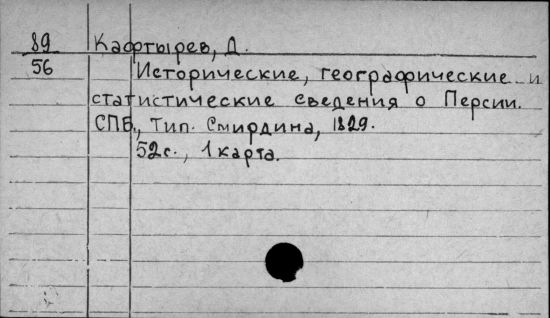 89 Кафтырев, Д.
56 Исторические, географические и
статистические сведения о Персии.
СПБ, Тип. Смирдина, 1829.
52с., 1 карта.